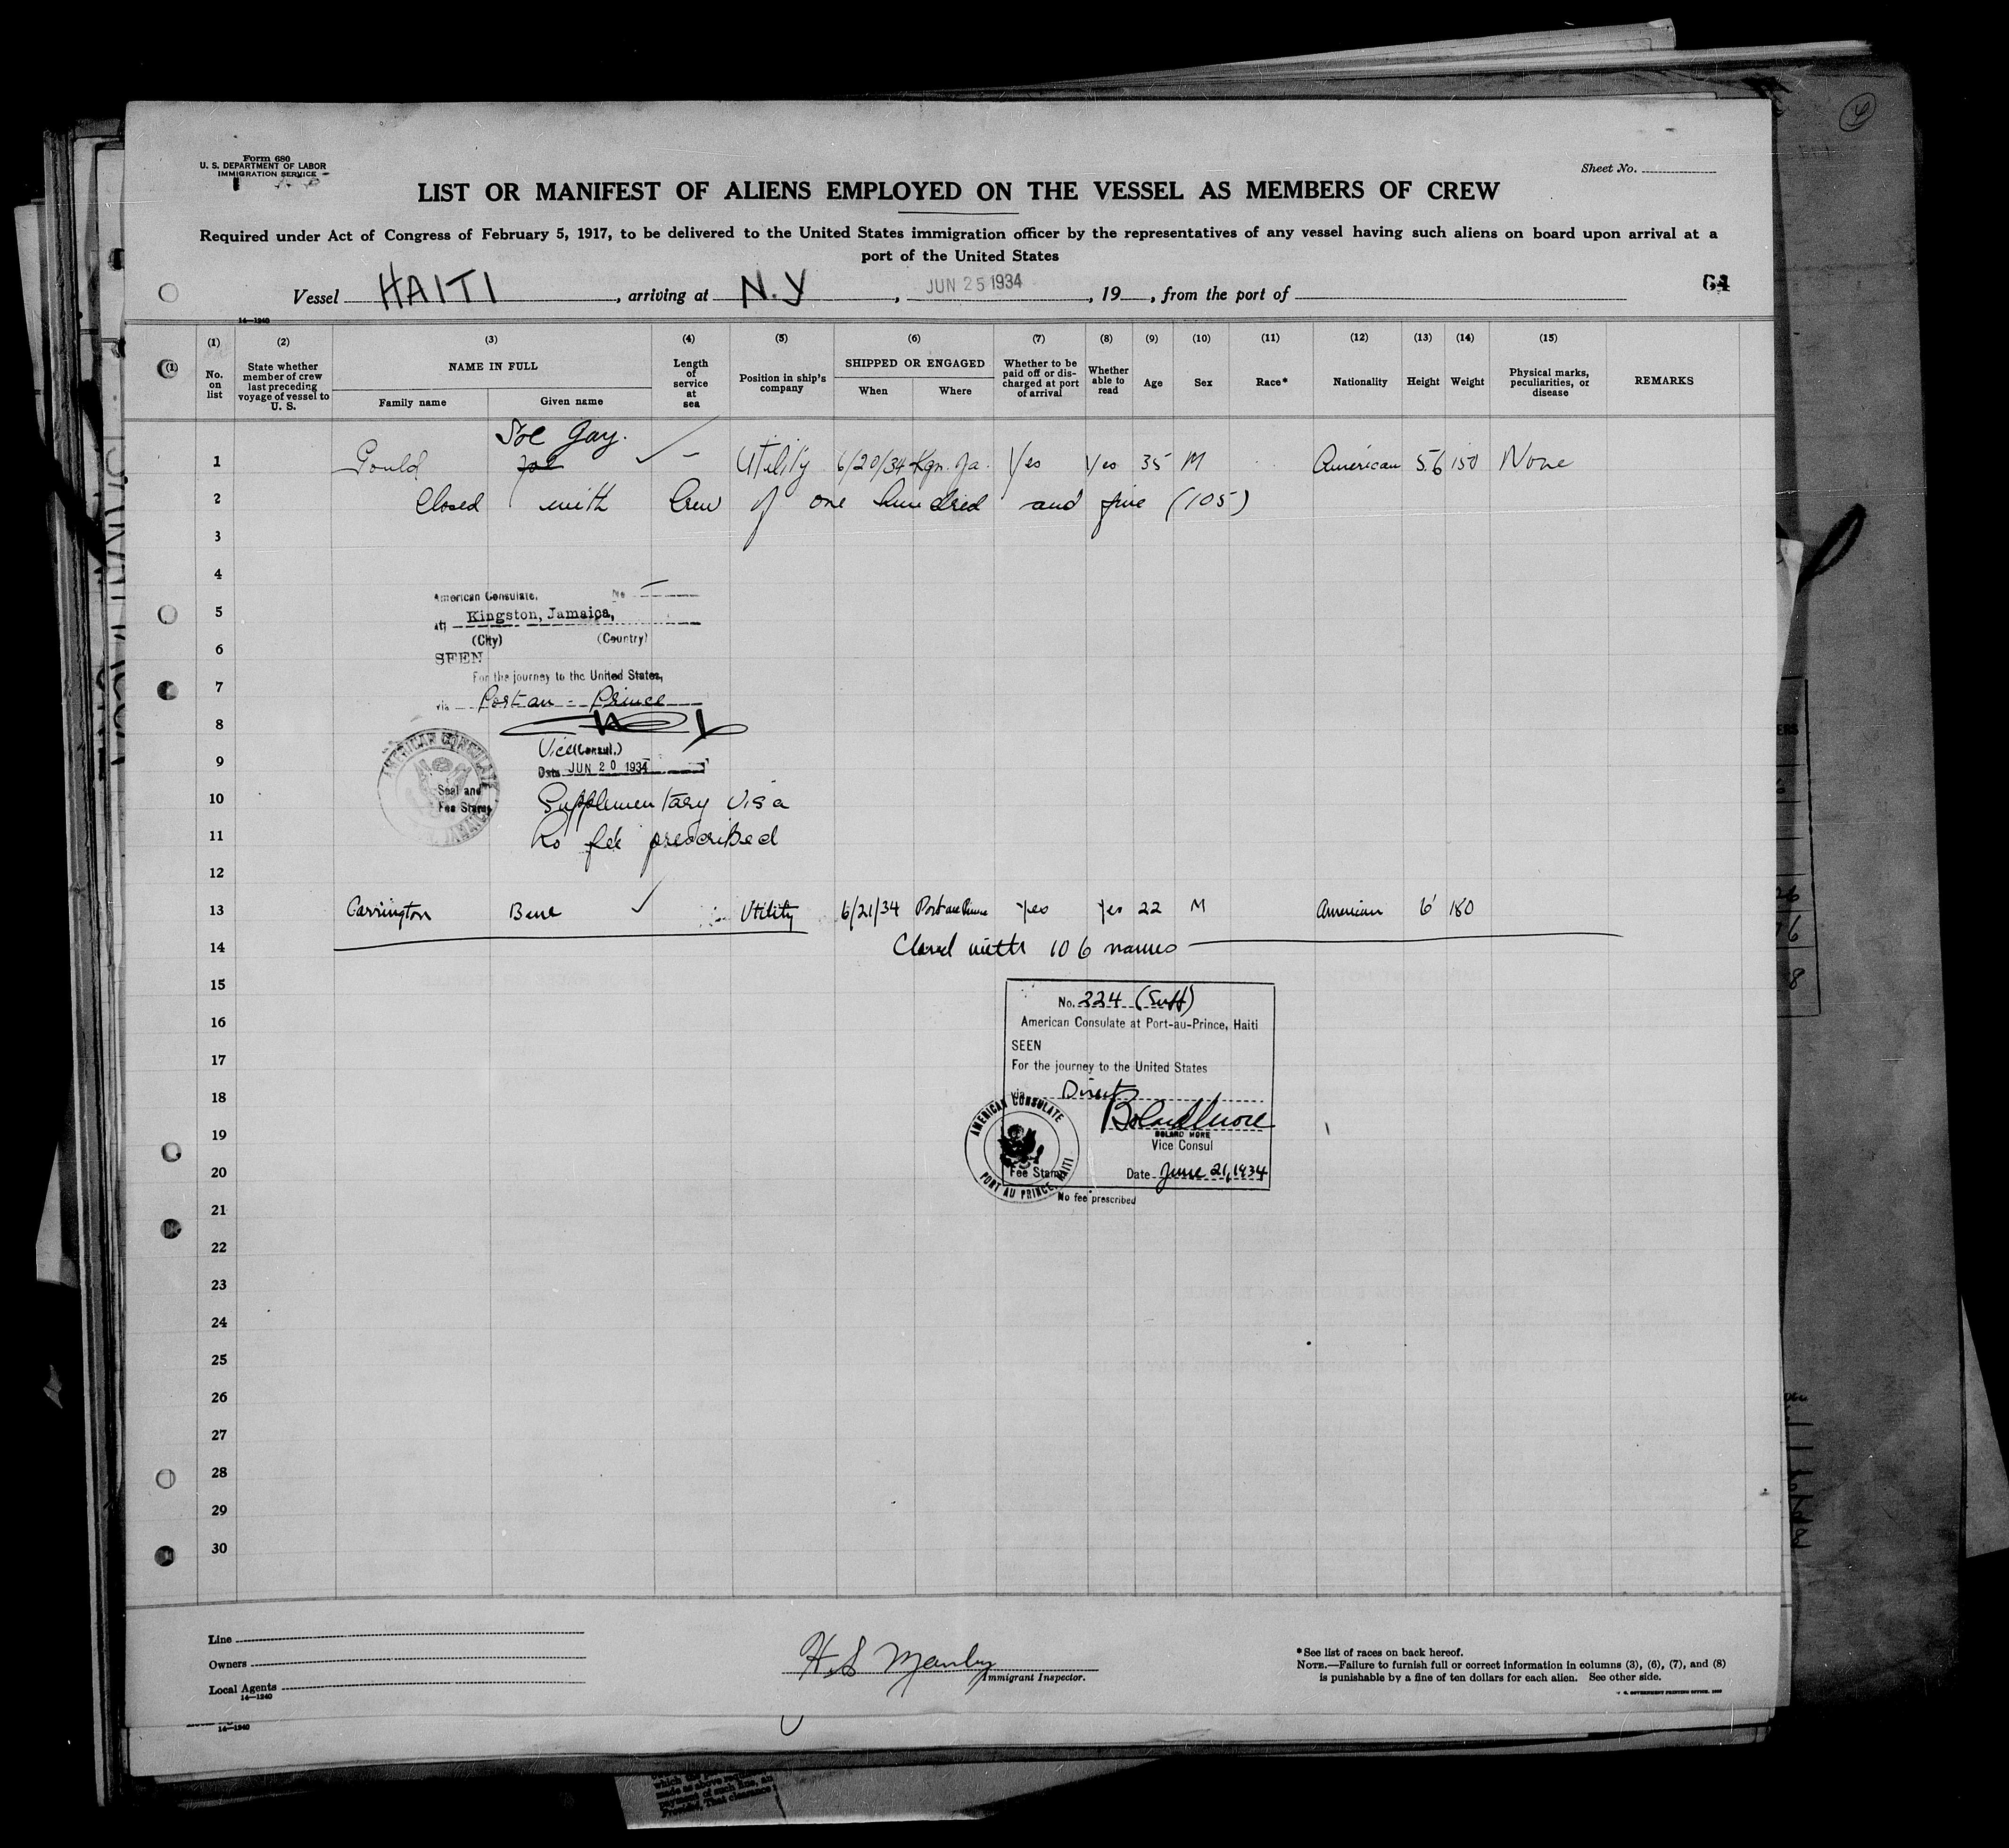 Form 680
U. S. DEPARTMENT OF LABOR
IMMIGRATION SERVICE
Sheet No.
LIST OR MANIFEST OF ALIENS EMPLOYED ON THE VESSEL AS MEMBERS OF CREW
Required under Act of Congress of February 5, 1917, to be delivered to the United States immigration officer by the representatives of any vessel having such aliens on board upon arrival at a
port of the United States
Vessel HAITI, arriving at N.Y, JUN 25 1934, 19 , from the port of
64
14—1240
(1) (2) (3) (4) (5) (6) (7) (8) (9) (10) (11) (12) (13) (14) (15)
No. on list
State whether member of crew last preceding voyage of vessel to U. S.
NAME IN FULL
Family name Given name
Length of service at sea
Position in ship's company
SHIPPED OR ENGAGED
When Where
Whether to be paid off or discharged at port of arrival
Whether able to read
Age
Sex
Race*
Nationality
Height
Weight
Physical marks, peculiarities, or disease
REMARKS
Joe Gay.
1 Gould Joe – Utility 6/20/34 Kgn. Ja. Yes Yes 35 M American 5'6 150 None
2 Closed with Crew of one hundred and five (105)
3
4
American Consulate, No
5
at Kingston, Jamaica,
(City) (Country)
6
SEEN
For the journey to the United States,
7
via Port au - Prince
8
Vice (Consul.)
9
Date JUN 20 1934
AMERICAN CONSULATE
Seal and
Fee Stamp
10 Supplementary Visa
11 No fee prescribed
12
13 Carrington Bene Utility 6/21/34 Port au Prince Yes Yes 22 M American 6' 180
14 Closed with 106 names
15
No. 224 (Supp)
16
American Consulate at Port-au-Prince, Haiti
SEEN
17
For the journey to the United States
18
via Direct
Boland More
19
BOLAND MORE
Vice Consul
20
Fee Stamp
Date June 21, 1934
AMERICAN CONSULATE
PORT AU PRINCE, HAITI
No fee prescribed
21
22
23
24
25
26
27
28
29
30
Line
Owners
Local Agents
14—1240
H S Manley
Immigrant Inspector.
*See list of races on back hereof.
NOTE.—Failure to furnish full or correct information in columns (3), (6), (7), and (8)
is punishable by a fine of ten dollars for each alien. See other side.
14—1240